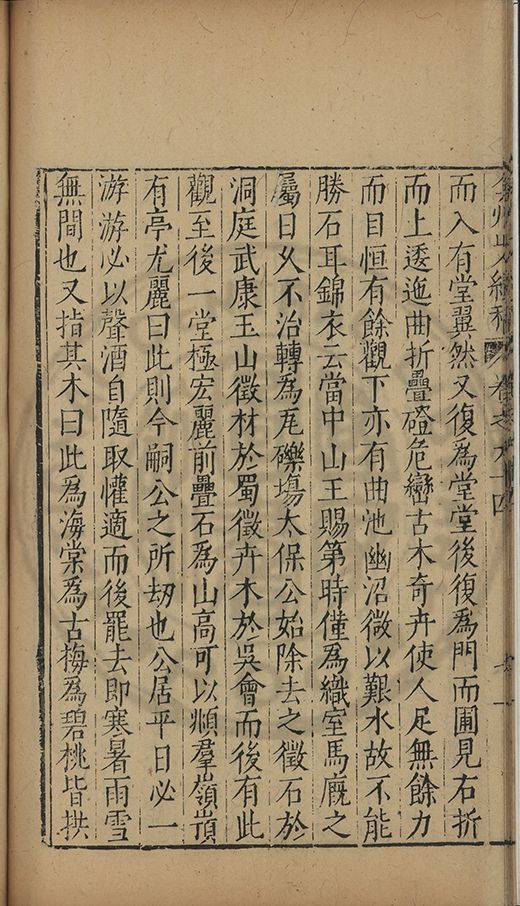 弇州山人續稿 卷之六十四
而入有堂翼然又復爲堂堂後復爲門而圃見右折
而上逶迤曲折疊磴危巒古木奇卉使人足無餘力
而目恒有餘觀下亦有曲池幽沼微以艱水故不能
勝石耳錦衣云當中山王賜第時僅爲織室馬廐之
屬日乆不治轉爲瓦礫塲太保公始除去之徵石於
洞庭武康玉山徵材於蜀徵卉木於吳會而後有此
觀至後一堂極宏麗前疊石爲山高可以頫羣嶺頂
有亭尤麗曰此則今嗣公之所刱也公居平日必一
游游必以聲酒自隨取懽適而後罷去即寒暑雨雪
無間也又指其木曰此爲海棠爲古梅爲碧桃皆拱